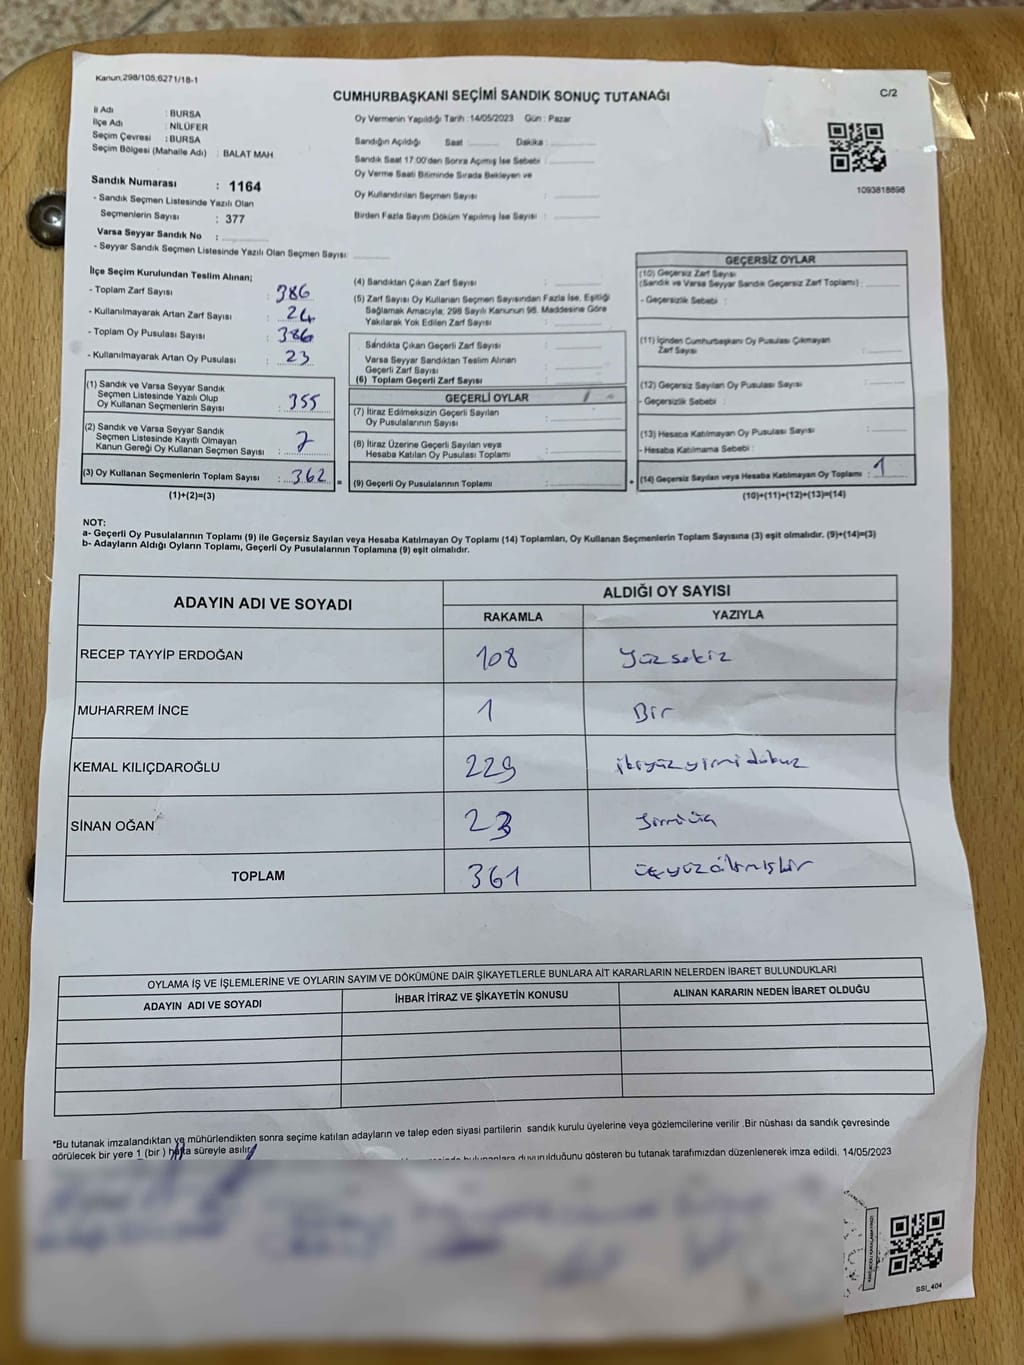 Kanun;298/105;6271/18-1
C/2
CUMHURBAŞKANI SEÇİMİ SANDIK SONUÇ TUTANAĞI
İl Adı : BURSA
İlçe Adı : NİLÜFER
Seçim Çevresi : BURSA
Seçim Bölgesi (Mahalle Adı) : BALAT MAH
Sandık Numarası : 1164
- Sandık Seçmen Listesinde Yazılı Olan
Seçmenlerin Sayısı : 377
Varsa Seyyar Sandık No :
- Seyyar Sandık Seçmen Listesinde Yazılı Olan Seçmen Sayısı:
Oy Vermenin Yapıldığı Tarih :14/05/2023 Gün : Pazar
Sandığın Açıldığı Saat Dakika :
Sandık Saat 17:00'den Sonra Açımış İse Sebebi :
Oy Verme Saati Bitiminde Sırada Bekleyen ve
Oy Kullandırılan Seçmen Sayısı :
Birden Fazla Sayım Döküm Yapılmış İse Sayısı :
1093818898
İlçe Seçim Kurulundan Teslim Alınan;
- Toplam Zarf Sayısı : 386
- Kullanılmayarak Artan Zarf Sayısı : 24
- Toplam Oy Pusulası Sayısı : 386
- Kullanılmayarak Artan Oy Pusulası : 23
(1) Sandık ve Varsa Seyyar Sandık
Seçmen Listesinde Yazılı Olup
Oy Kullanan Seçmenlerin Sayısı : 355
(2) Sandık ve Varsa Seyyar Sandık
Seçmen Listesinde Kayıtlı Olmayan
Kanun Gereği Oy Kullanan Seçmen Sayısı : 7
(3) Oy Kullanan Seçmenlerin Toplam Sayısı : 362 =
(1)+(2)=(3)
(4) Sandıktan Çıkan Zarf Sayısı :
(5) Zarf Sayısı Oy Kullanan Seçmen Sayısından Fazla İse, Eşitliği
Sağlamak Amacıyla; 298 Sayılı Kanunun 98. Maddesine Göre
Yakılarak Yok Edilen Zarf Sayısı :
Sandıkta Çıkan Geçerli Zarf Sayısı :
Varsa Seyyar Sandıktan Teslim Alınan
Geçerli Zarf Sayısı :
(6) Toplam Geçerli Zarf Sayısı :
GEÇERLİ OYLAR
(7) İtiraz Edilmeksizin Geçerli Sayılan
Oy Pusulalarının Sayısı :
(8) İtiraz Üzerine Geçerli Sayılan veya
Hesaba Katılan Oy Pusulası Toplamı :
(9) Geçerli Oy Pusulalarının Toplamı : +
GEÇERSİZ OYLAR
(10) Geçersiz Zarf Sayısı
(Sandık ve Varsa Seyyar Sandık Geçersiz Zarf Toplamı) :
- Geçersizlik Sebebi :
(11) İçinden Cumhurbaşkanı Oy Pusulası Çıkmayan
Zarf Sayısı :
(12) Geçersiz Sayılan Oy Pusulası Sayısı :
- Geçersizlik Sebebi :
(13) Hesaba Katılmayan Oy Pusulası Sayısı :
- Hesaba Katılmama Sebebi :
(14) Geçersiz Sayılan veya Hesaba Katılmayan Oy Toplamı : 1
(10)+(11)+(12)+(13)=(14)
NOT:
a- Geçerli Oy Pusulalarının Toplamı (9) ile Geçersiz Sayılan veya Hesaba Katılmayan Oy Toplamı (14) Toplamları, Oy Kullanan Seçmenlerin Toplam Sayısına (3) eşit olmalıdır. (9)+(14)=(3)
b- Adayların Aldığı Oyların Toplamı, Geçerli Oy Pusulalarının Toplamına (9) eşit olmalıdır.
ADAYIN ADI VE SOYADI ALDIĞI OY SAYISI
RAKAMLA YAZIYLA
RECEP TAYYİP ERDOĞAN 108 Yüzsekiz
MUHARREM İNCE 1 Bir
KEMAL KILIÇDAROĞLU 229 ikiyüzyirmidokuz
SİNAN OĞAN 23 Yirmiüç
TOPLAM 361 üçyüzaltmışbir
OYLAMA İŞ VE İŞLEMLERİNE VE OYLARIN SAYIM VE DÖKÜMÜNE DAİR ŞİKAYETLERLE BUNLARA AİT KARARLARIN NELERDEN İBARET BULUNDUKLARI
ADAYIN ADI VE SOYADI İHBAR İTİRAZ VE ŞİKAYETİN KONUSU ALINAN KARARIN NEDEN İBARET OLDUĞU
*Bu tutanak imzalandıktan ve mühürlendikten sonra seçime katılan adayların ve talep eden siyasi partilerin sandık kurulu üyelerine veya gözlemcilerine verilir .Bir nüshası da sandık çevresinde
görülecek bir yere 1 (bir ) hafta süreyle asılır.
bulunanlara duyurulduğunu gösteren bu tutanak tarafımızdan düzenlenerek imza edildi. 14/05/2023
SSI_404